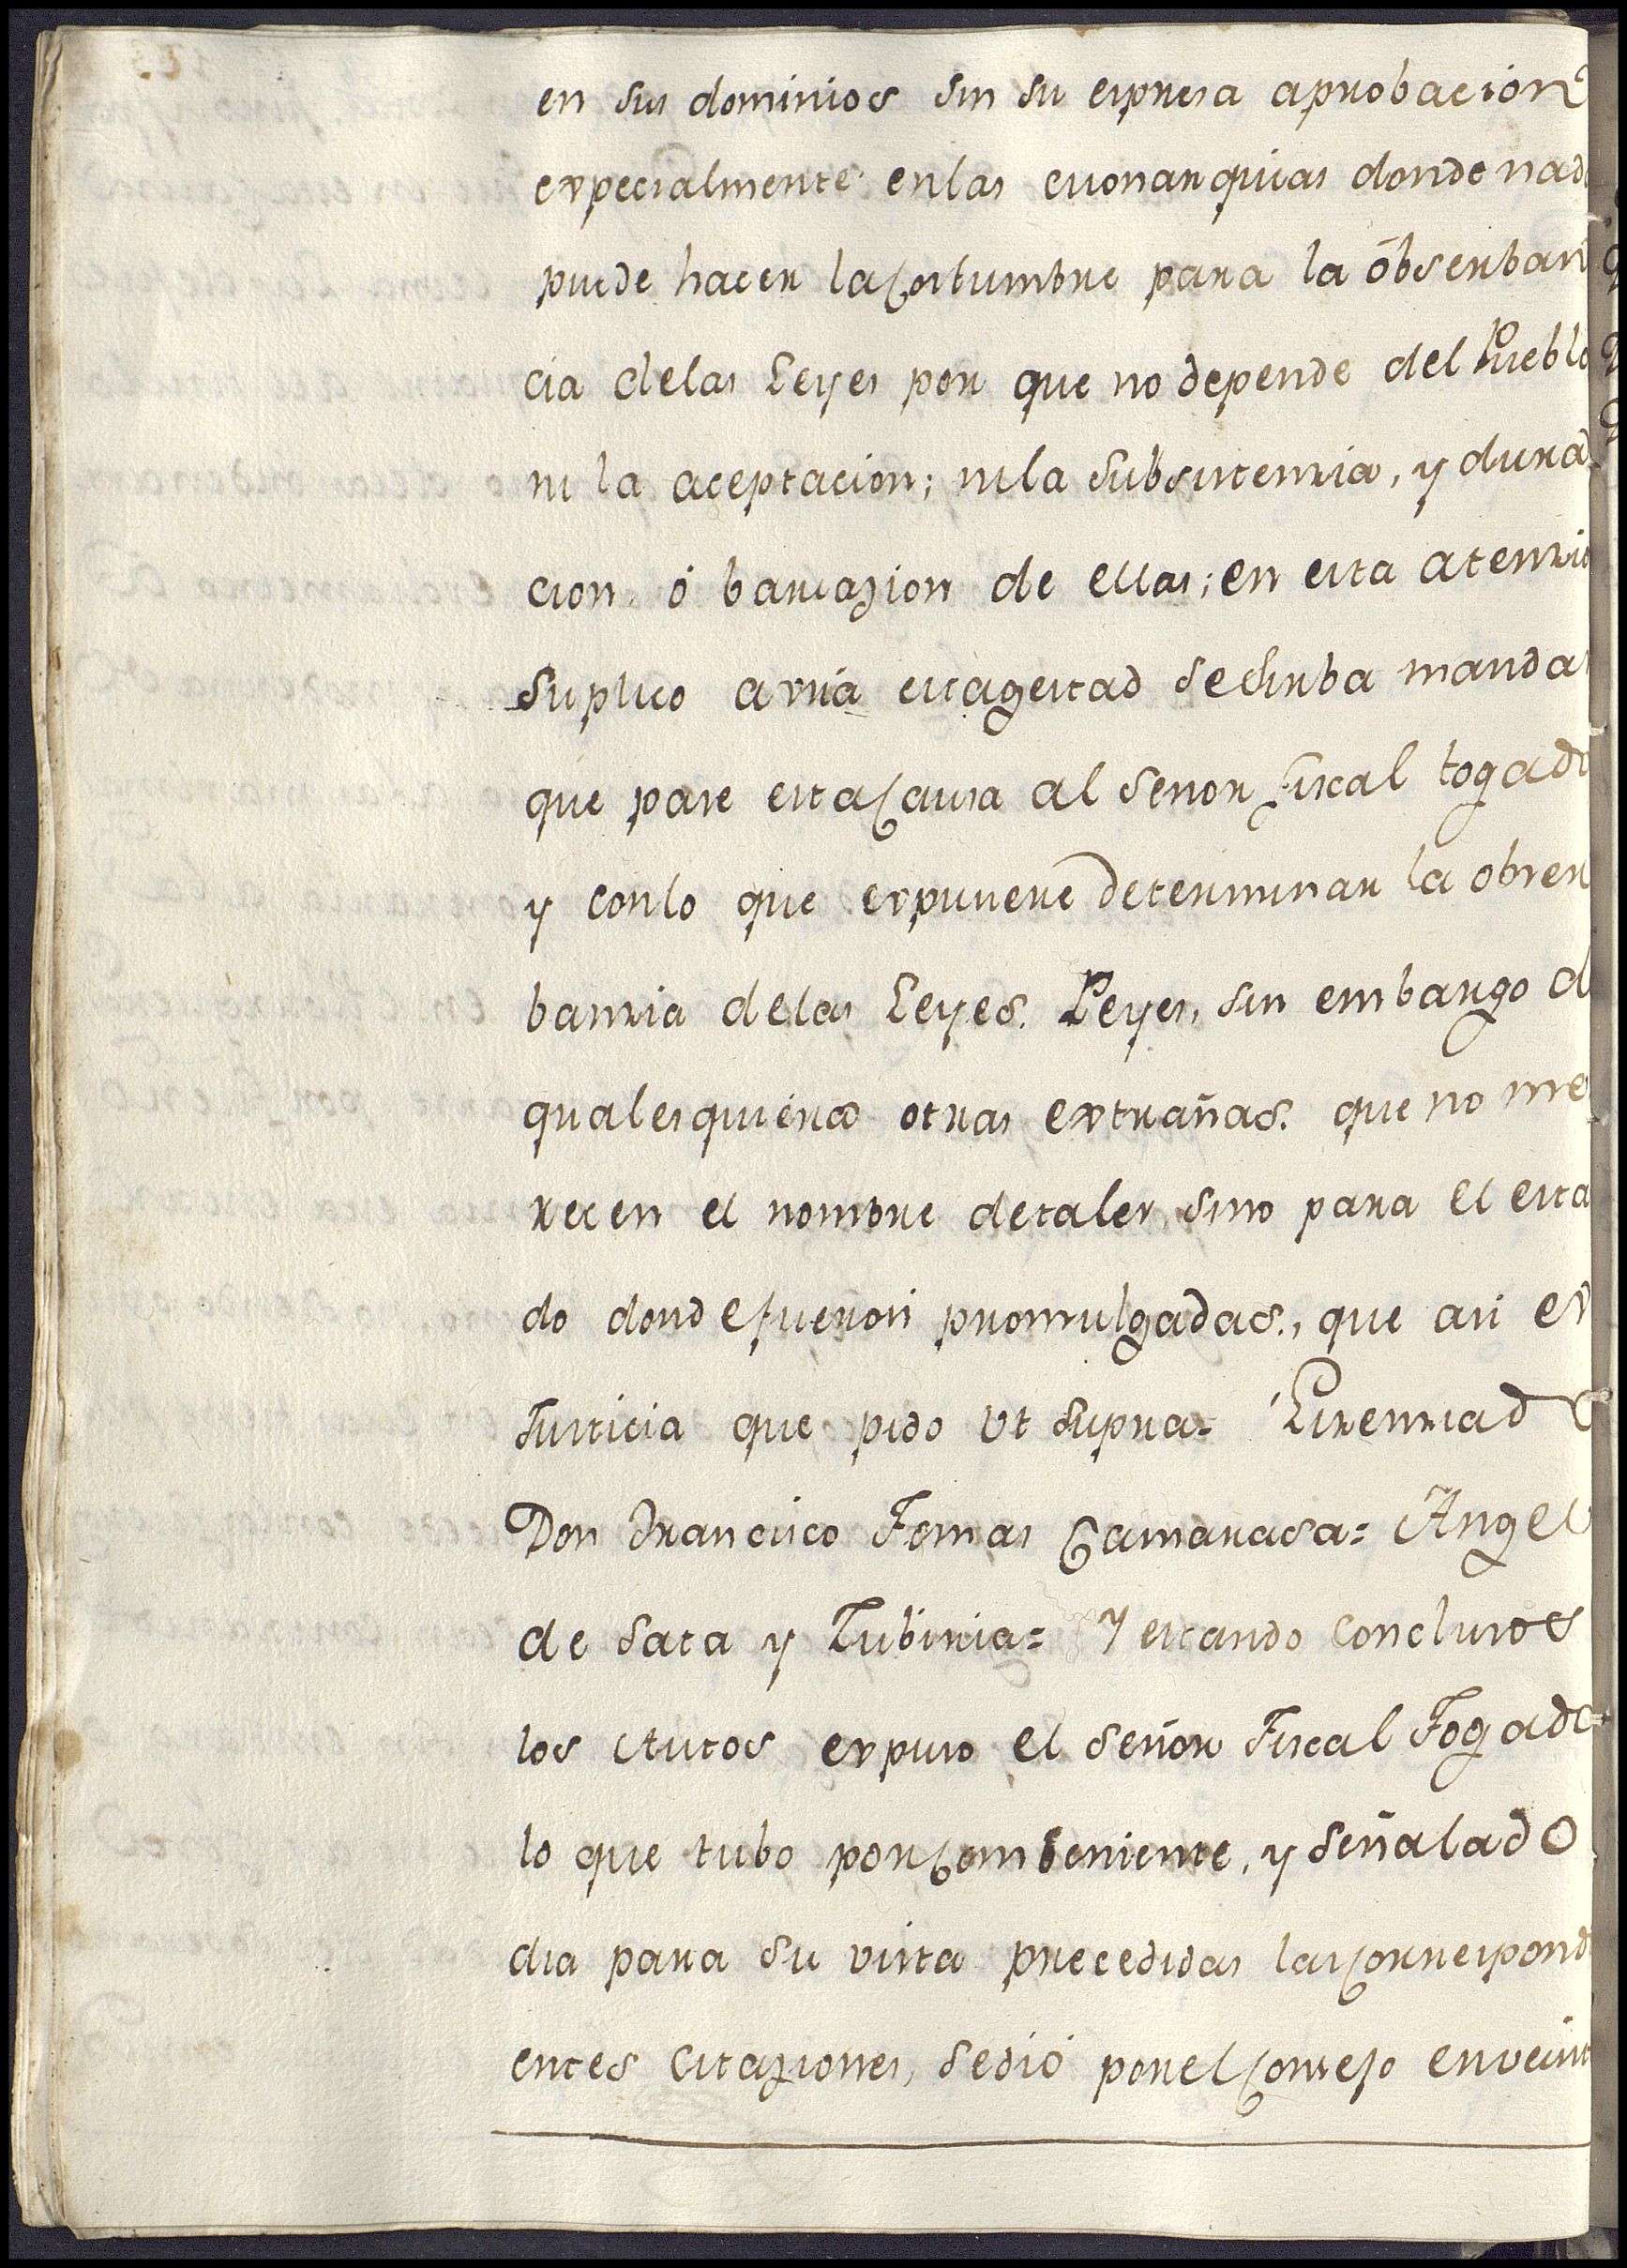 en sus dominios sin su expresa aprobacion
expecialmente en las Monarquias donde nad
puede hacer la Costumbre para la óbserban
cia de las Leyes por que no depende del Pueblo
ni la aceptacion; ni la subsistenzia, y dura
cion, ó bariazion de ellas; en esta atenzio
suplico a vra Magestad se sirba mandar
que pase esta Causa al señor Fiscal togado
y con lo que expusiere determinar la obser
banzia de las Leyes Reyes, sin embargo d
qualesquiera otras extrañas que no me
recen el nombre de tales sino para el esta
do donde fueron promulgadas, que asi es
Justicia que pido ut supra = Lizenziado
Don Francisco Tomas Camarasa = Angel
de Sata y Zubiria = Y estando conclusos
los Autos expuso el señor Fiscal Togado
lo que tubo por Combeniente, y señalado
dia para su vista precedidas las Correspond
entes citaziones, se dió por el Consejo en veint